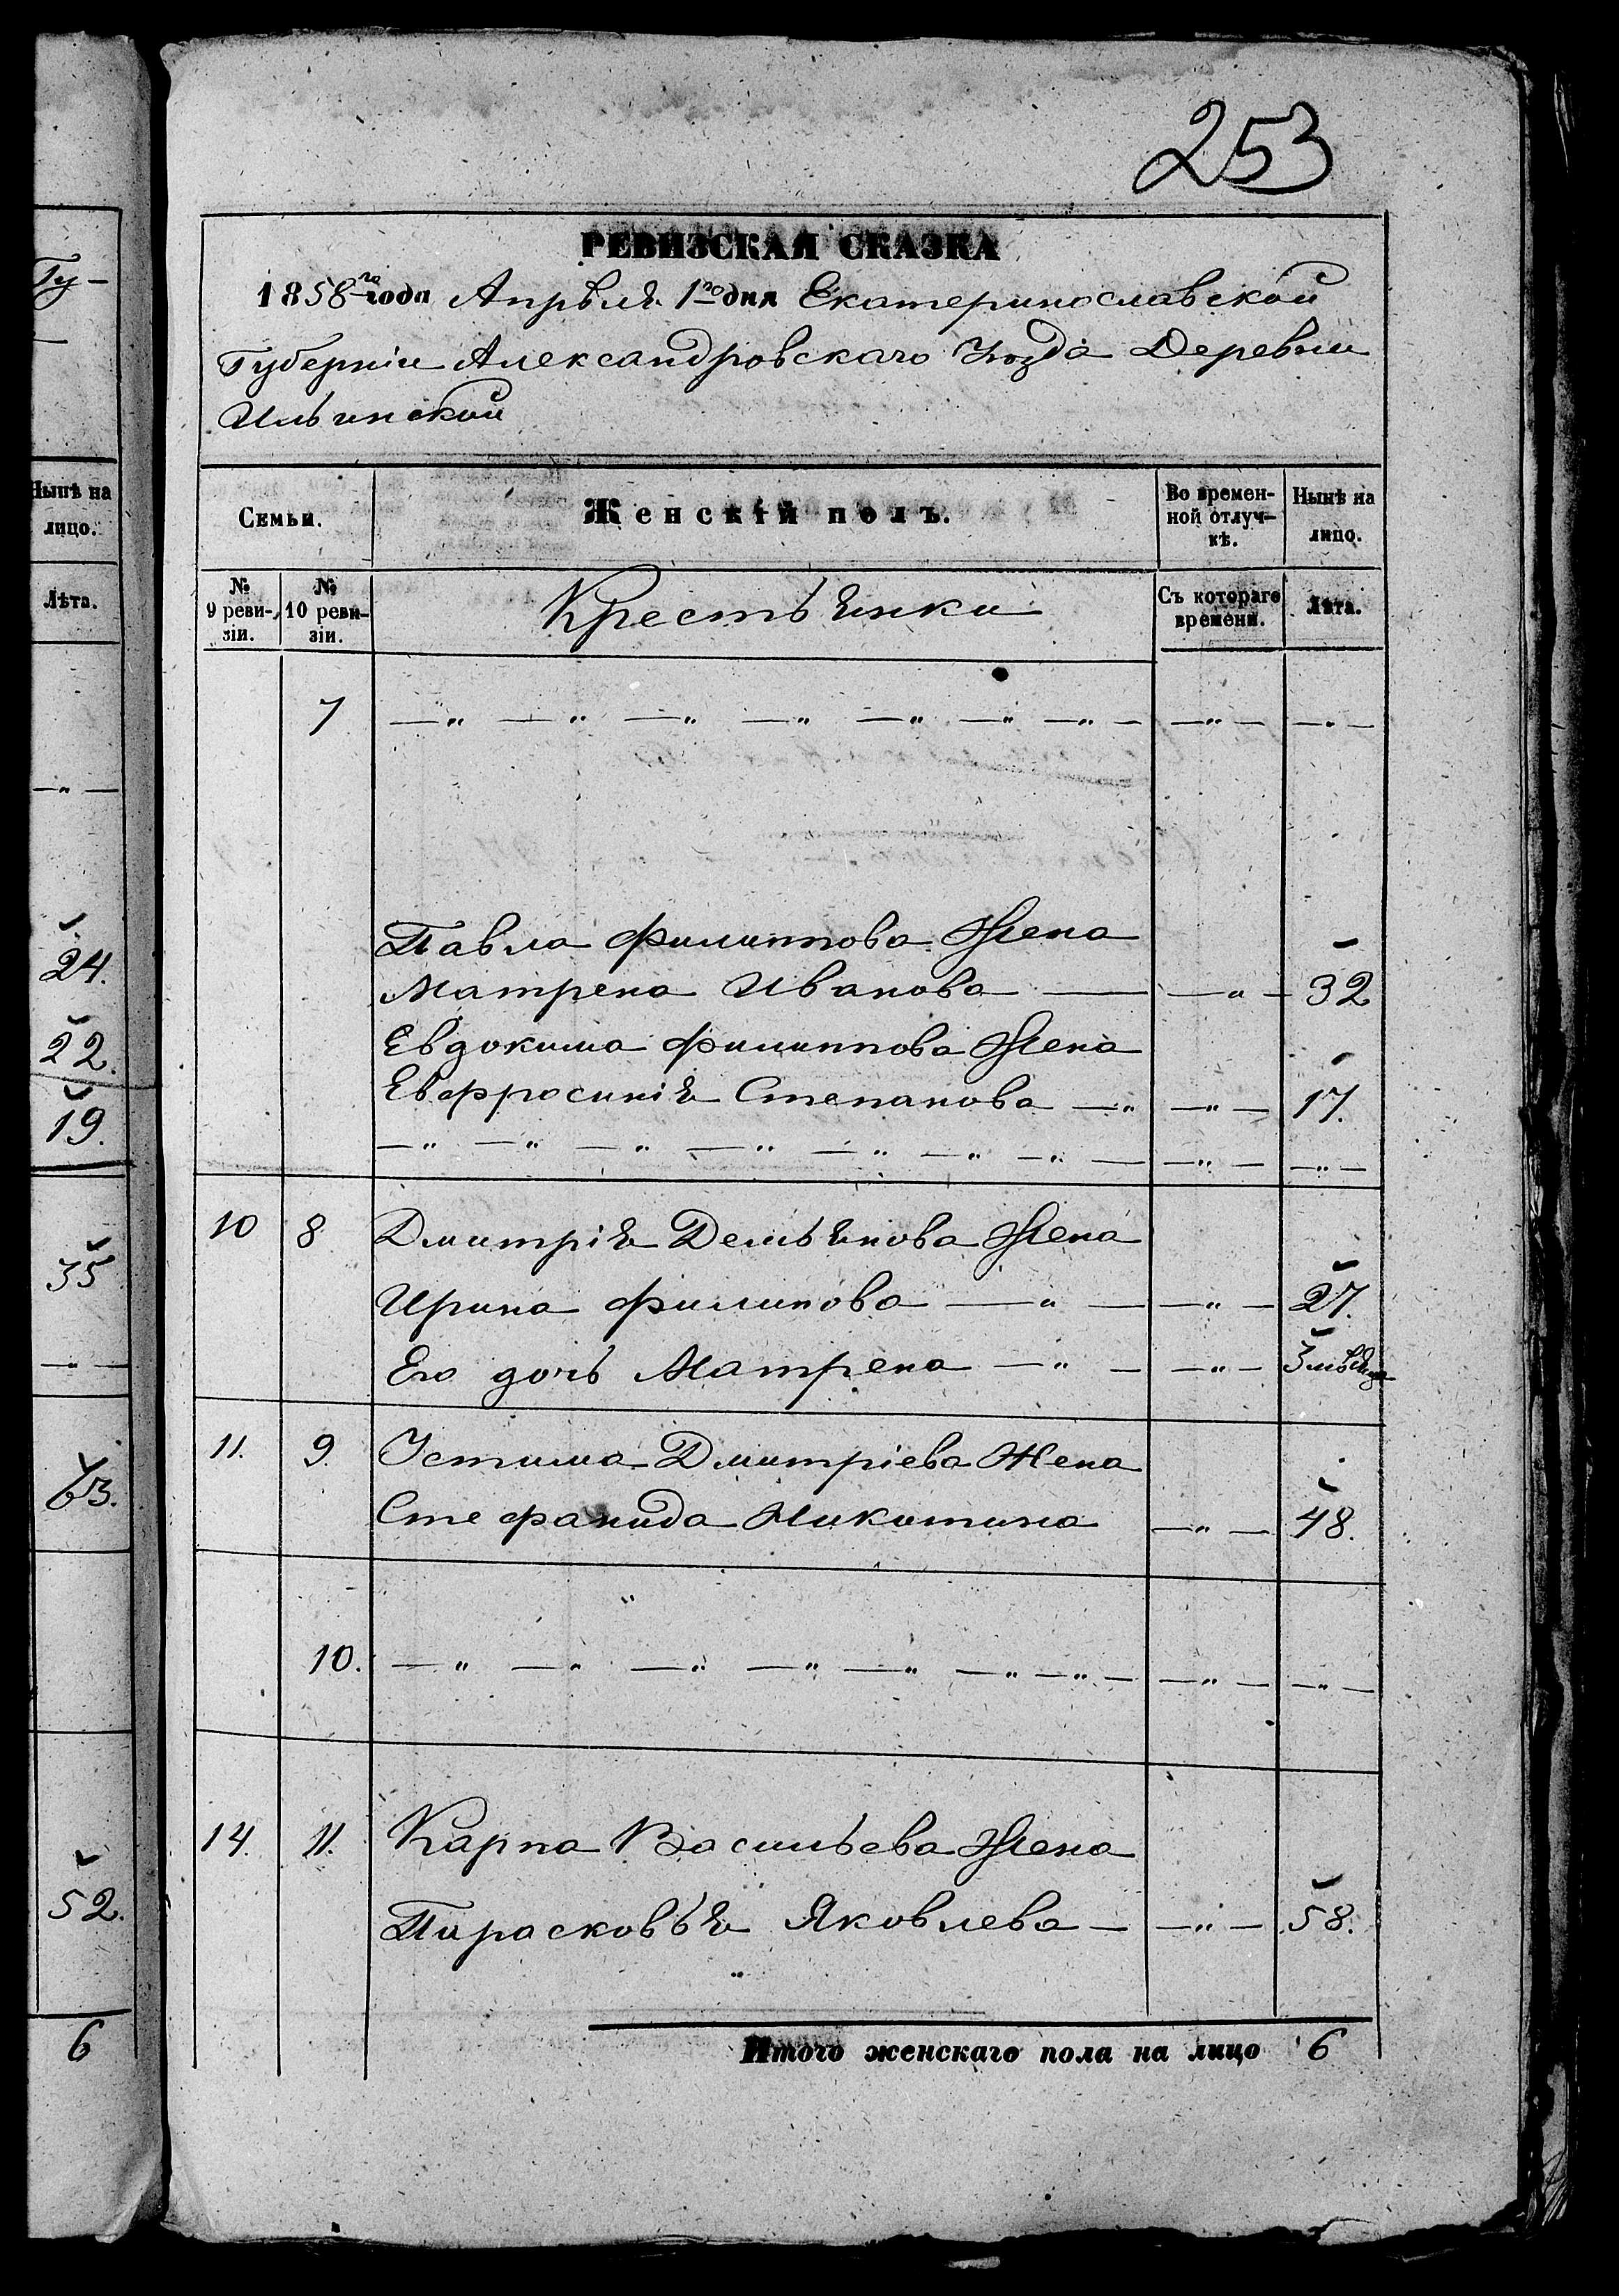 253
РЕВИЗСКАЯ СКАЗКА
1858го года Апрѣля 1го дня Екатеринославской
Губерніи Александровскаго Уѣзда Деревни
Ильинской
Семьи.
Женскій полъ.
Во времен-
ной отлуч-
кѣ.
Нынѣ на
лицо.
№
9 реви-
зіи.
№
10 реви-
зіи.
Крестьянки
Съ котораго
времени.
Лѣта.
7 —„ —„ —„ —„ —„ —„ —„— —„— —„—
Павла Филиппова Жена
Матрена Иванова — —„— 32
Евдокима Филиппова Жена
Евфросинія Степанова —„ —„— 17.
—„ —„ —„ —„ —„ —„ —„— —„— —„—
10 8 Дмитрія Демьянова Жена
Ирина Филипова —„— —„— 27.
Его дочь Матрена —„— —„— 3
11. 9. Устима Дмитріева Жена
Стефанида Никитина —„— 48.
10. —„ —„ —„ —„ —„ —„ —„— —„— —„—
14. 11. Карпа Васильева Жена
Парасковья Яковлева — —„— 58.
Итого женскаго пола на лицо 6
Гу-
Нынѣ на
лицо.
Лѣта.
—„—
24.
22.
19.
35
—„—
63.
52.
6